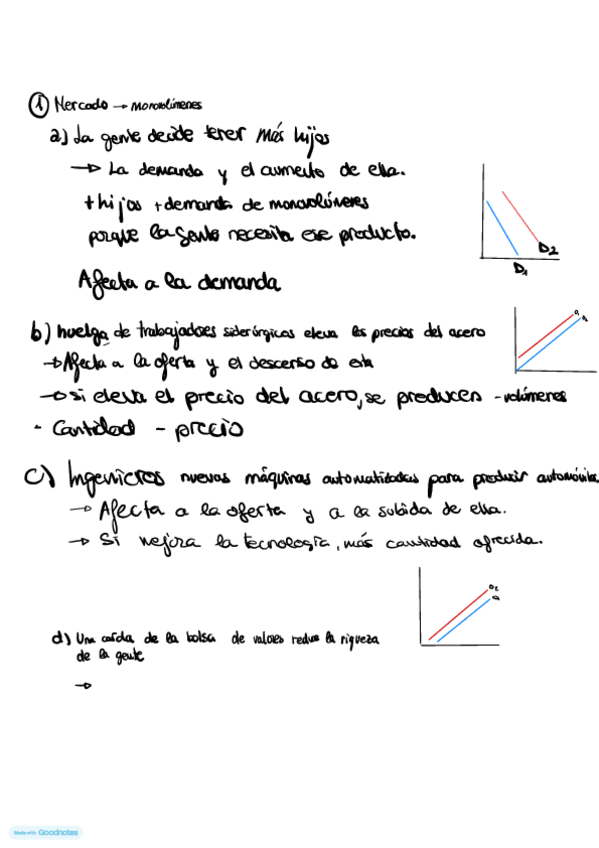 ① Mercado → monovolúmenes
a) La gente decide tener más hijos
→ La demanda y el aumento de ella.
+ hijos + demanda de monovolúmenes
porque la gente necesita ese producto.
D2
D1
Afecta a la demanda
b) huelga de trabajadores siderúrgicos eleva los precios del acero
→ Afecta a la oferta y el descenso de ella
→ si eleva el precio del acero, se producen - volúmenes
- Cantidad - precio
c) Ingenieros nuevas máquinas automatizadas para producir
→ Afecta a la oferta y a la subida de ella.
→ Si mejora la tecnología, más cantidad ofrecida.
d) Una caída de la bolsa de valores reduce la riqueza
de la gente
→
Made with Goodnotes